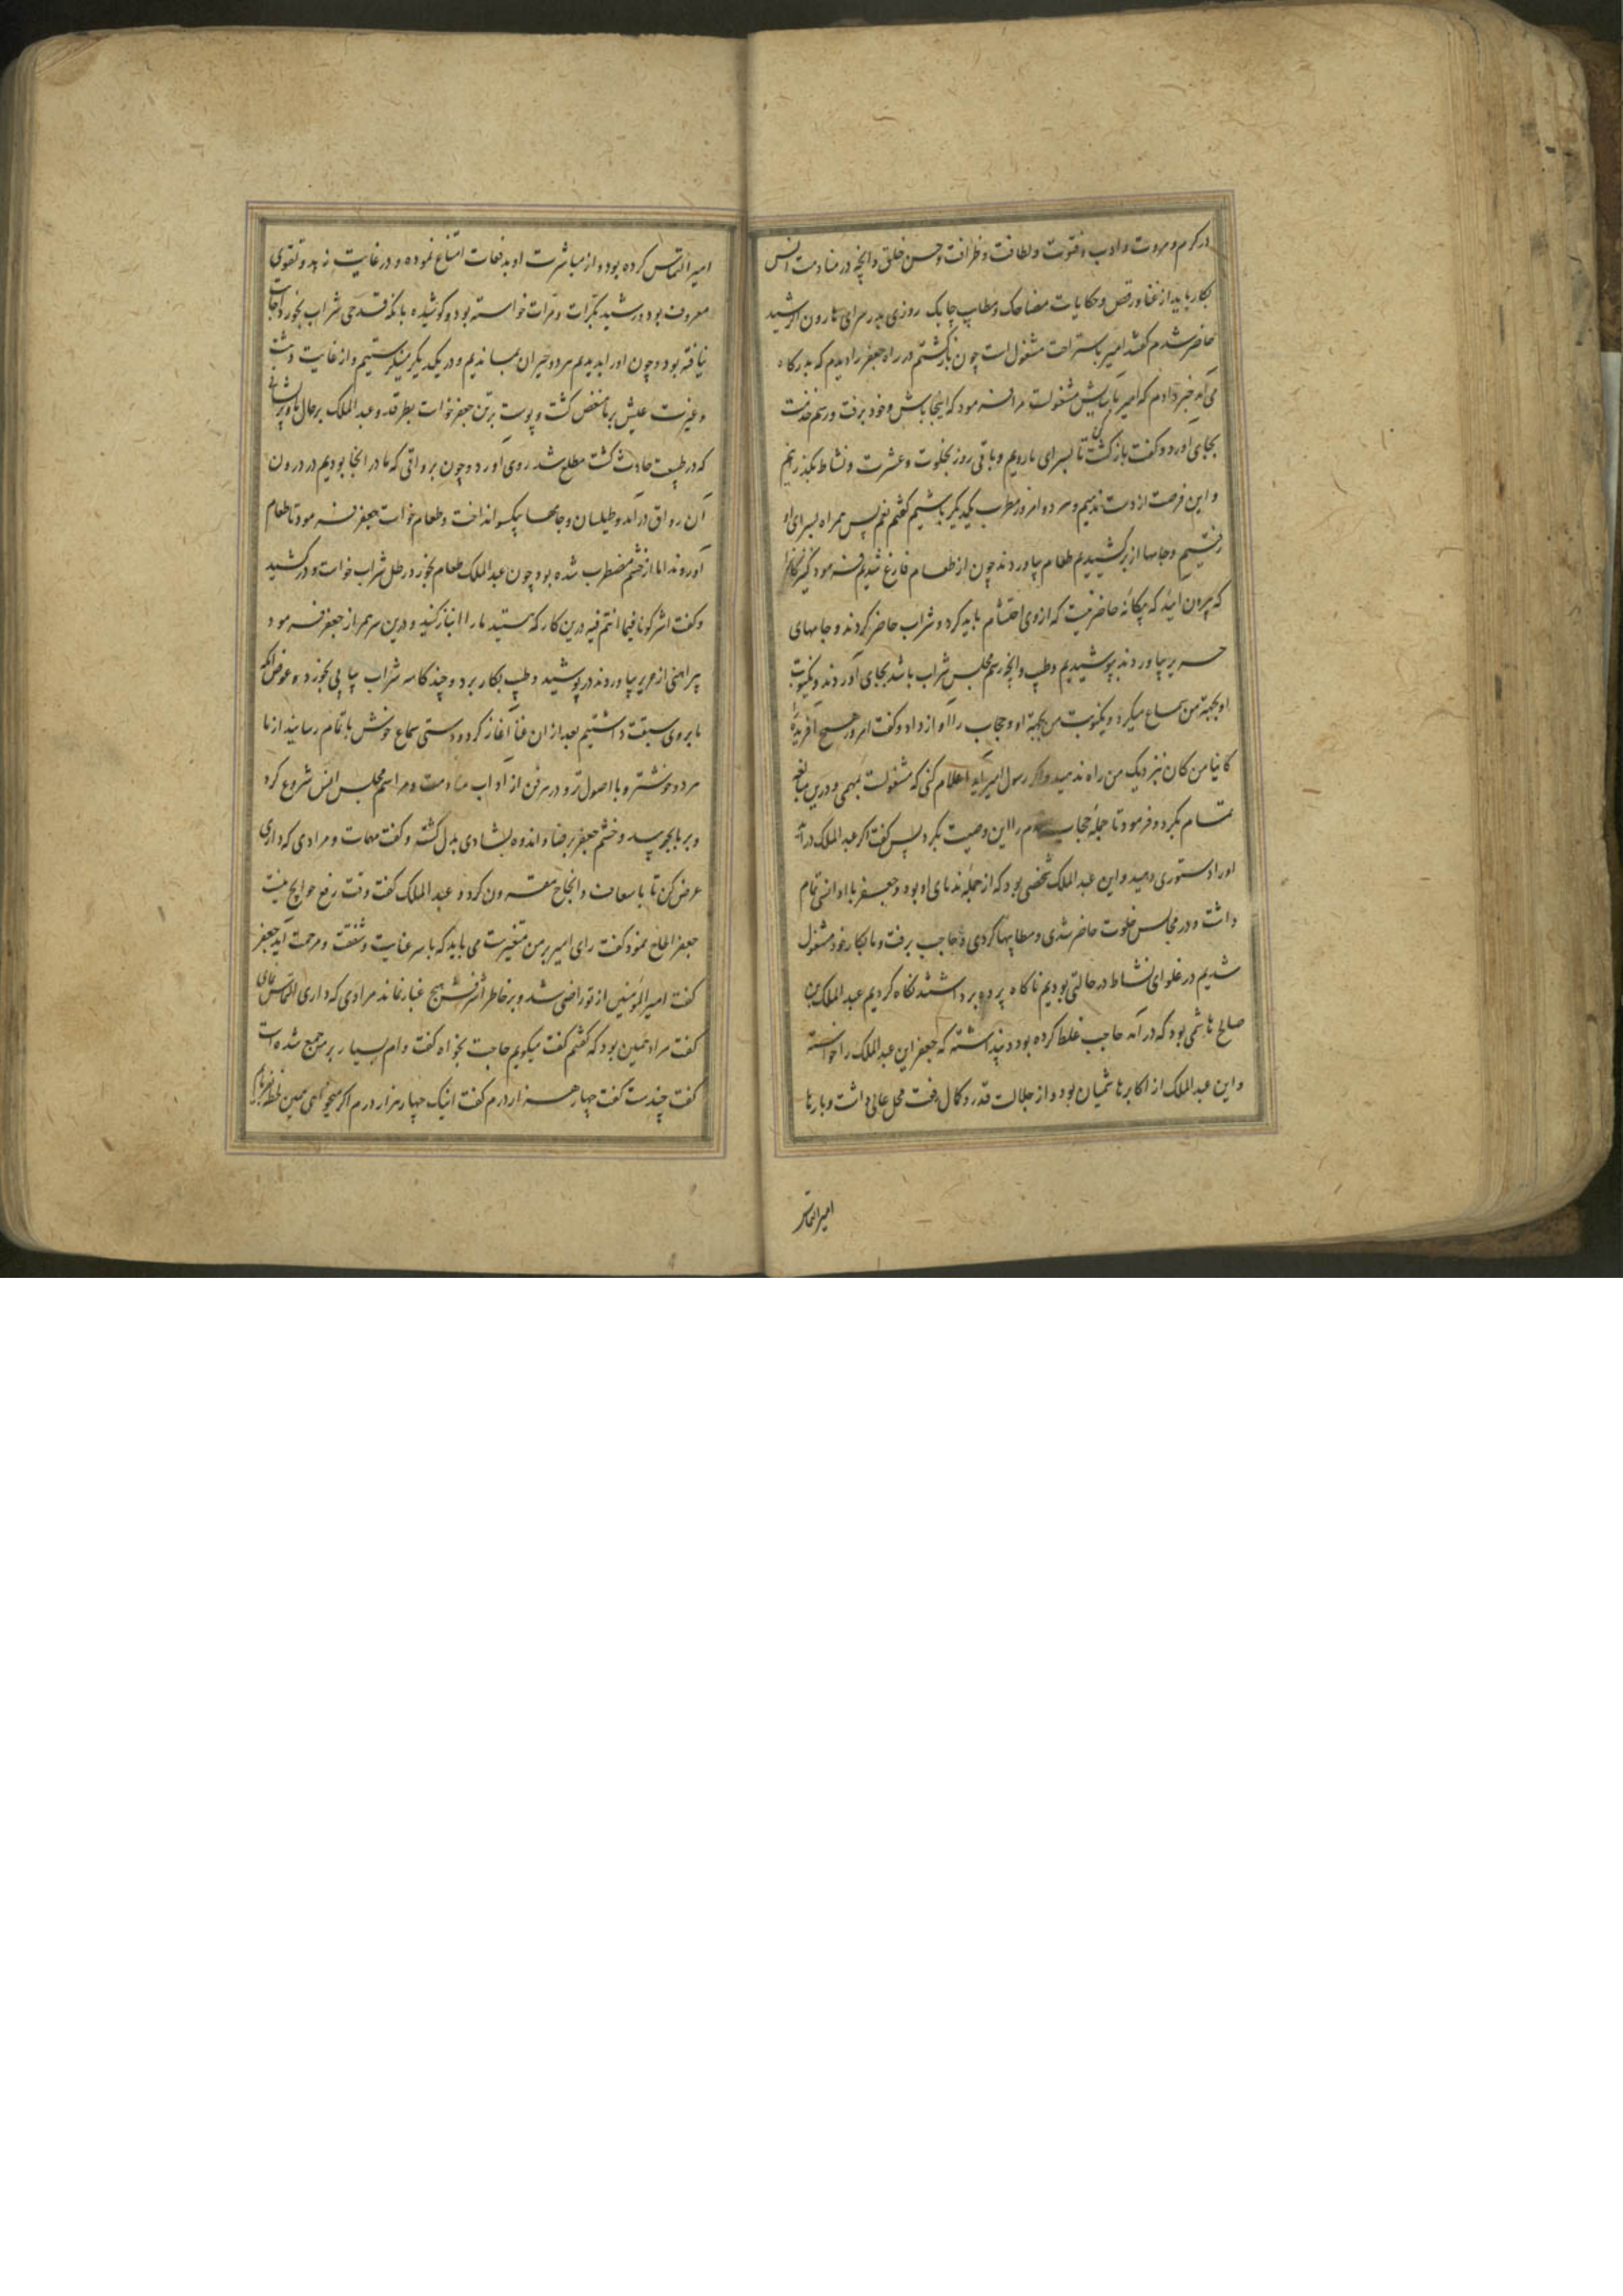 در کرم و مروت و ادب و فتوت و لطافت و ظرافت و حسن خلق و آنچه در منادمت انس
بکار باید از غنا و رقص و حکایات مضاحک و مطایب چابک روزی بدر سرای هارون الرشید
حاضر شدم گفتند امیر باستراحت مشغول است چون بازگشتم در راه جعفر را دیدم که بدرگاه
می آمد خبر دادم که امیر بآسایش مشغولست مرا فرمود که اینجا باش و خود برفت و رسم خدمت
بجای آورد و گفت بازگشت کن تا بسرای ما رویم و باقی روز بخلوت و عشرت و نشاط بگذرانیم
و این فرصت از دست ندهیم و هر دو امروز مطرب یکدیگر باشیم گفتم نعم پس همراه بسرای او
رفتیم و جامها از بر کشیدیم طعام بیاوردند چون از طعام فارغ شدیم فرمود کنیزکانرا
که بیرون آیید که بیگانه حاضر نیست که از وی احتشام باید کرد و شراب حاضر کردند و جامهای
حریر بیاوردند بپوشیدیم و طیب و آنچه رسم مجلس شراب باشد بجای آوردند و یکنوبت
او بجهة من سماع میکرد و یکنوبت من بجهة او و حجاب را آواز داد و گفت امروز هیچ آفریده را
کائنا من کان نزدیک من راه ندهید و اگر رسول امیر آید اعلام کنی که مشغولست بمهمی و درین مبالغه
تمام بکرد و فرمود تا جمله حجاب و را این وصیت بکرد پس گفت اگر عبد الملک در آید
او را دستوری دهید و این عبد الملک شخصی بود که از جمله ندمای او بود و جعفر با او انسی تمام
داشت و در مجالس خلوت حاضر شدی و مطایبها کردی و حاجب برفت و ما بکار خود مشغول
شدیم در غلوای نشاط در حالتی بودیم ناگاه پرده برداشتند نگاه کردیم عبد الملک بن
صالح هاشمی بود که در آمد حاجب غلط کرده بود و پنداشته که جعفر این عبد الملک را خواسته
و این عبد الملک از اکابر هاشمیان بود و از جلالت قدر و کمال رفعت محل عالی داشت و بارها
امیر التماس
امیر التماس کرده بود و از مباشرت او بدفعات امتناع نموده و در غایت زهد و تقوی
معروف بود و رشید بکرات و مرات خواسته بود و کوشیده بانکه قدحی شراب بخورد اجابت
نیافته بود و چون او را بدیدیم هر دو حیران بماندیم و در یکدیگر مینگریستیم و از غایت دهشت
و غیرت عیش بر ما منغص گشت و پوست بر تن جعفر خواست بطرقد و عبد الملک بر حال ما و پریشانی
که در طبیعت حادث گشت مطلع شد روی آورد و چون بر واقی که ما در آنجا بودیم در درون
آن رواق در آمد و طیلسان و جامها بیکسو انداخت و طعام خواست جعفر فرمود تا طعام
آوروند اما از خشم مضطرب شده بود چون عبد الملک طعام بخورد رطل شراب خواست و درکشید
و گفت اشرکونا فیما انتم فیه درین کار که هستید ما را انباز کنید و درین سر همراز جعفر فرمود
پیراهنی از حریر بیاوردند در پوشید و طیب بکار برد و چند کاسه شراب پیاپی بخورد و عوض آنکه
ما بر وی سبقت داشتیم بعد از آن غنا آغاز کرد و دستی سماع خوش با تمام رسانید از ما
هر دو خوشتر و با اصول تر و در هر فن از آداب منادمت و مراسم مجلس انس شروع کرد
و بر ما بچربید و خشم جعفر برضا و اندوه بشادی بدل گشته و گفت مهمات و مرادی که داری
عرض کن تا باسعاف و انجاح مقرون گردد عبد الملک گفت وقت رفع حوایج نیست
جعفر الحاح نمود گفت رای امیر بر من متغیرست می باید که با سر عنایت و شفقت و مرحمت آید جعفر
گفت امیر المؤمنین از تو راضی شد و بر خاطر اشرفش هیچ غبار نماند مرادی که داری التماس نمای
گفت مراد همین بود که گفتم گفت میگویم حاجت بخواه گفت وام بسیار بر من جمع شده است
گفت چندست گفت چهار هزار درم گفت اینک چهار هزار درم اگر میخواهی همین لحظه